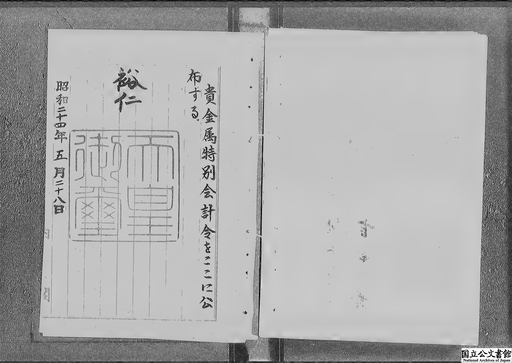 貴金属特別会計令をここに公
布する
裕仁
天皇
御璽
昭和二十四年五月二十八日
国立公文書館
National Archives of Japan